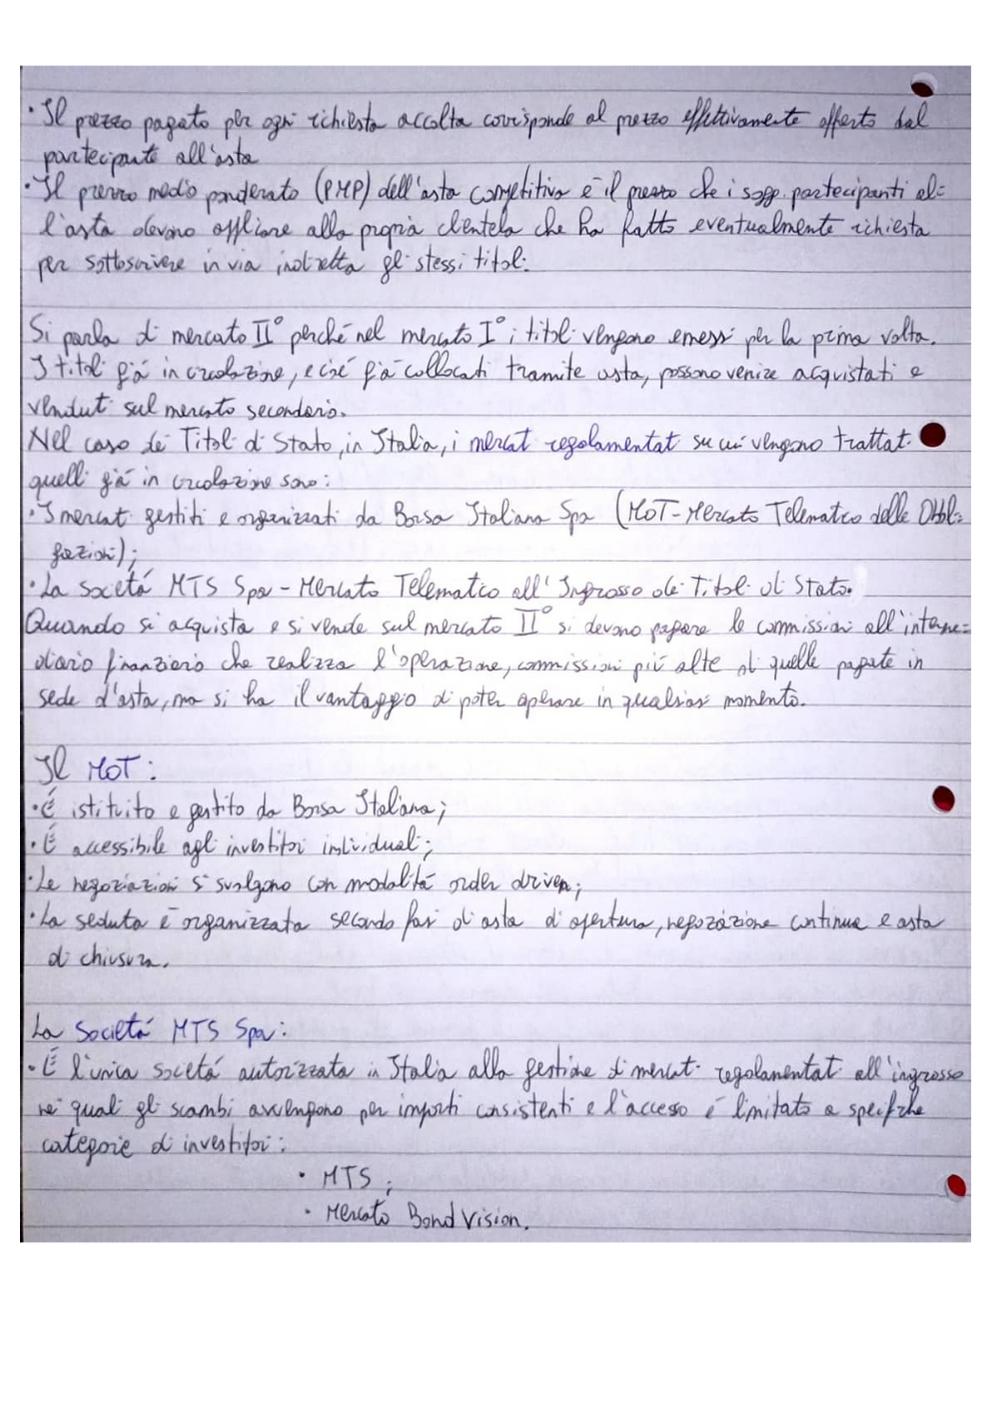 · Il prezzo pagato per ogni richiesta accolta corrisponde al prezzo effettivamente offerto dal
partecipante all'asta
· Il prezzo medio ponderato (PMP) dell'asta competitiva è il prezzo che i sogg. partecipanti al=
l'asta devono applicare alla propria clientela che ha fatto eventualmente richiesta
per sottoscrivere in via indiretta gli stessi titoli.
Si parla di mercato II° perché nel mercato I° i titoli vengono emessi per la prima volta.
I titoli già in circolazione, e cioè già collocati tramite asta, possono venire acquistati e
venduti sul mercato secondario.
Nel caso dei Titoli di Stato, in Italia, i mercati regolamentati su cui vengono trattati
quelli già in circolazione sono:
· I mercati gestiti e organizzati da Borsa Italiana Spa (MOT-Mercato Telematico delle Obbli=
gazioni);
· La società MTS Spa - Mercato Telematico all'Ingrosso dei Titoli di Stato.
Quando si acquista e si vende sul mercato II° si devono pagare le commissioni all'interme=
diario finanziario che realizza l'operazione, commissioni più alte di quelle pagate in
sede d'asta, ma si ha il vantaggio di poter operare in qualsiasi momento.
Il MOT:
· È istituito e gestito da Borsa Italiana;
· È accessibile agli investitori individuali;
· Le negoziazioni si svolgono con modalità order driven;
· La seduta è organizzata secondo fasi di asta di apertura, negoziazione continua e asta
di chiusura.
La Società MTS Spa:
· È l'unica società autorizzata in Italia alla gestione di mercati regolamentati all'ingrosso
nei quali gli scambi avvengono per importi consistenti e l'accesso è limitato a specifiche
categorie di investitori:
· MTS;
· Mercato BondVision.